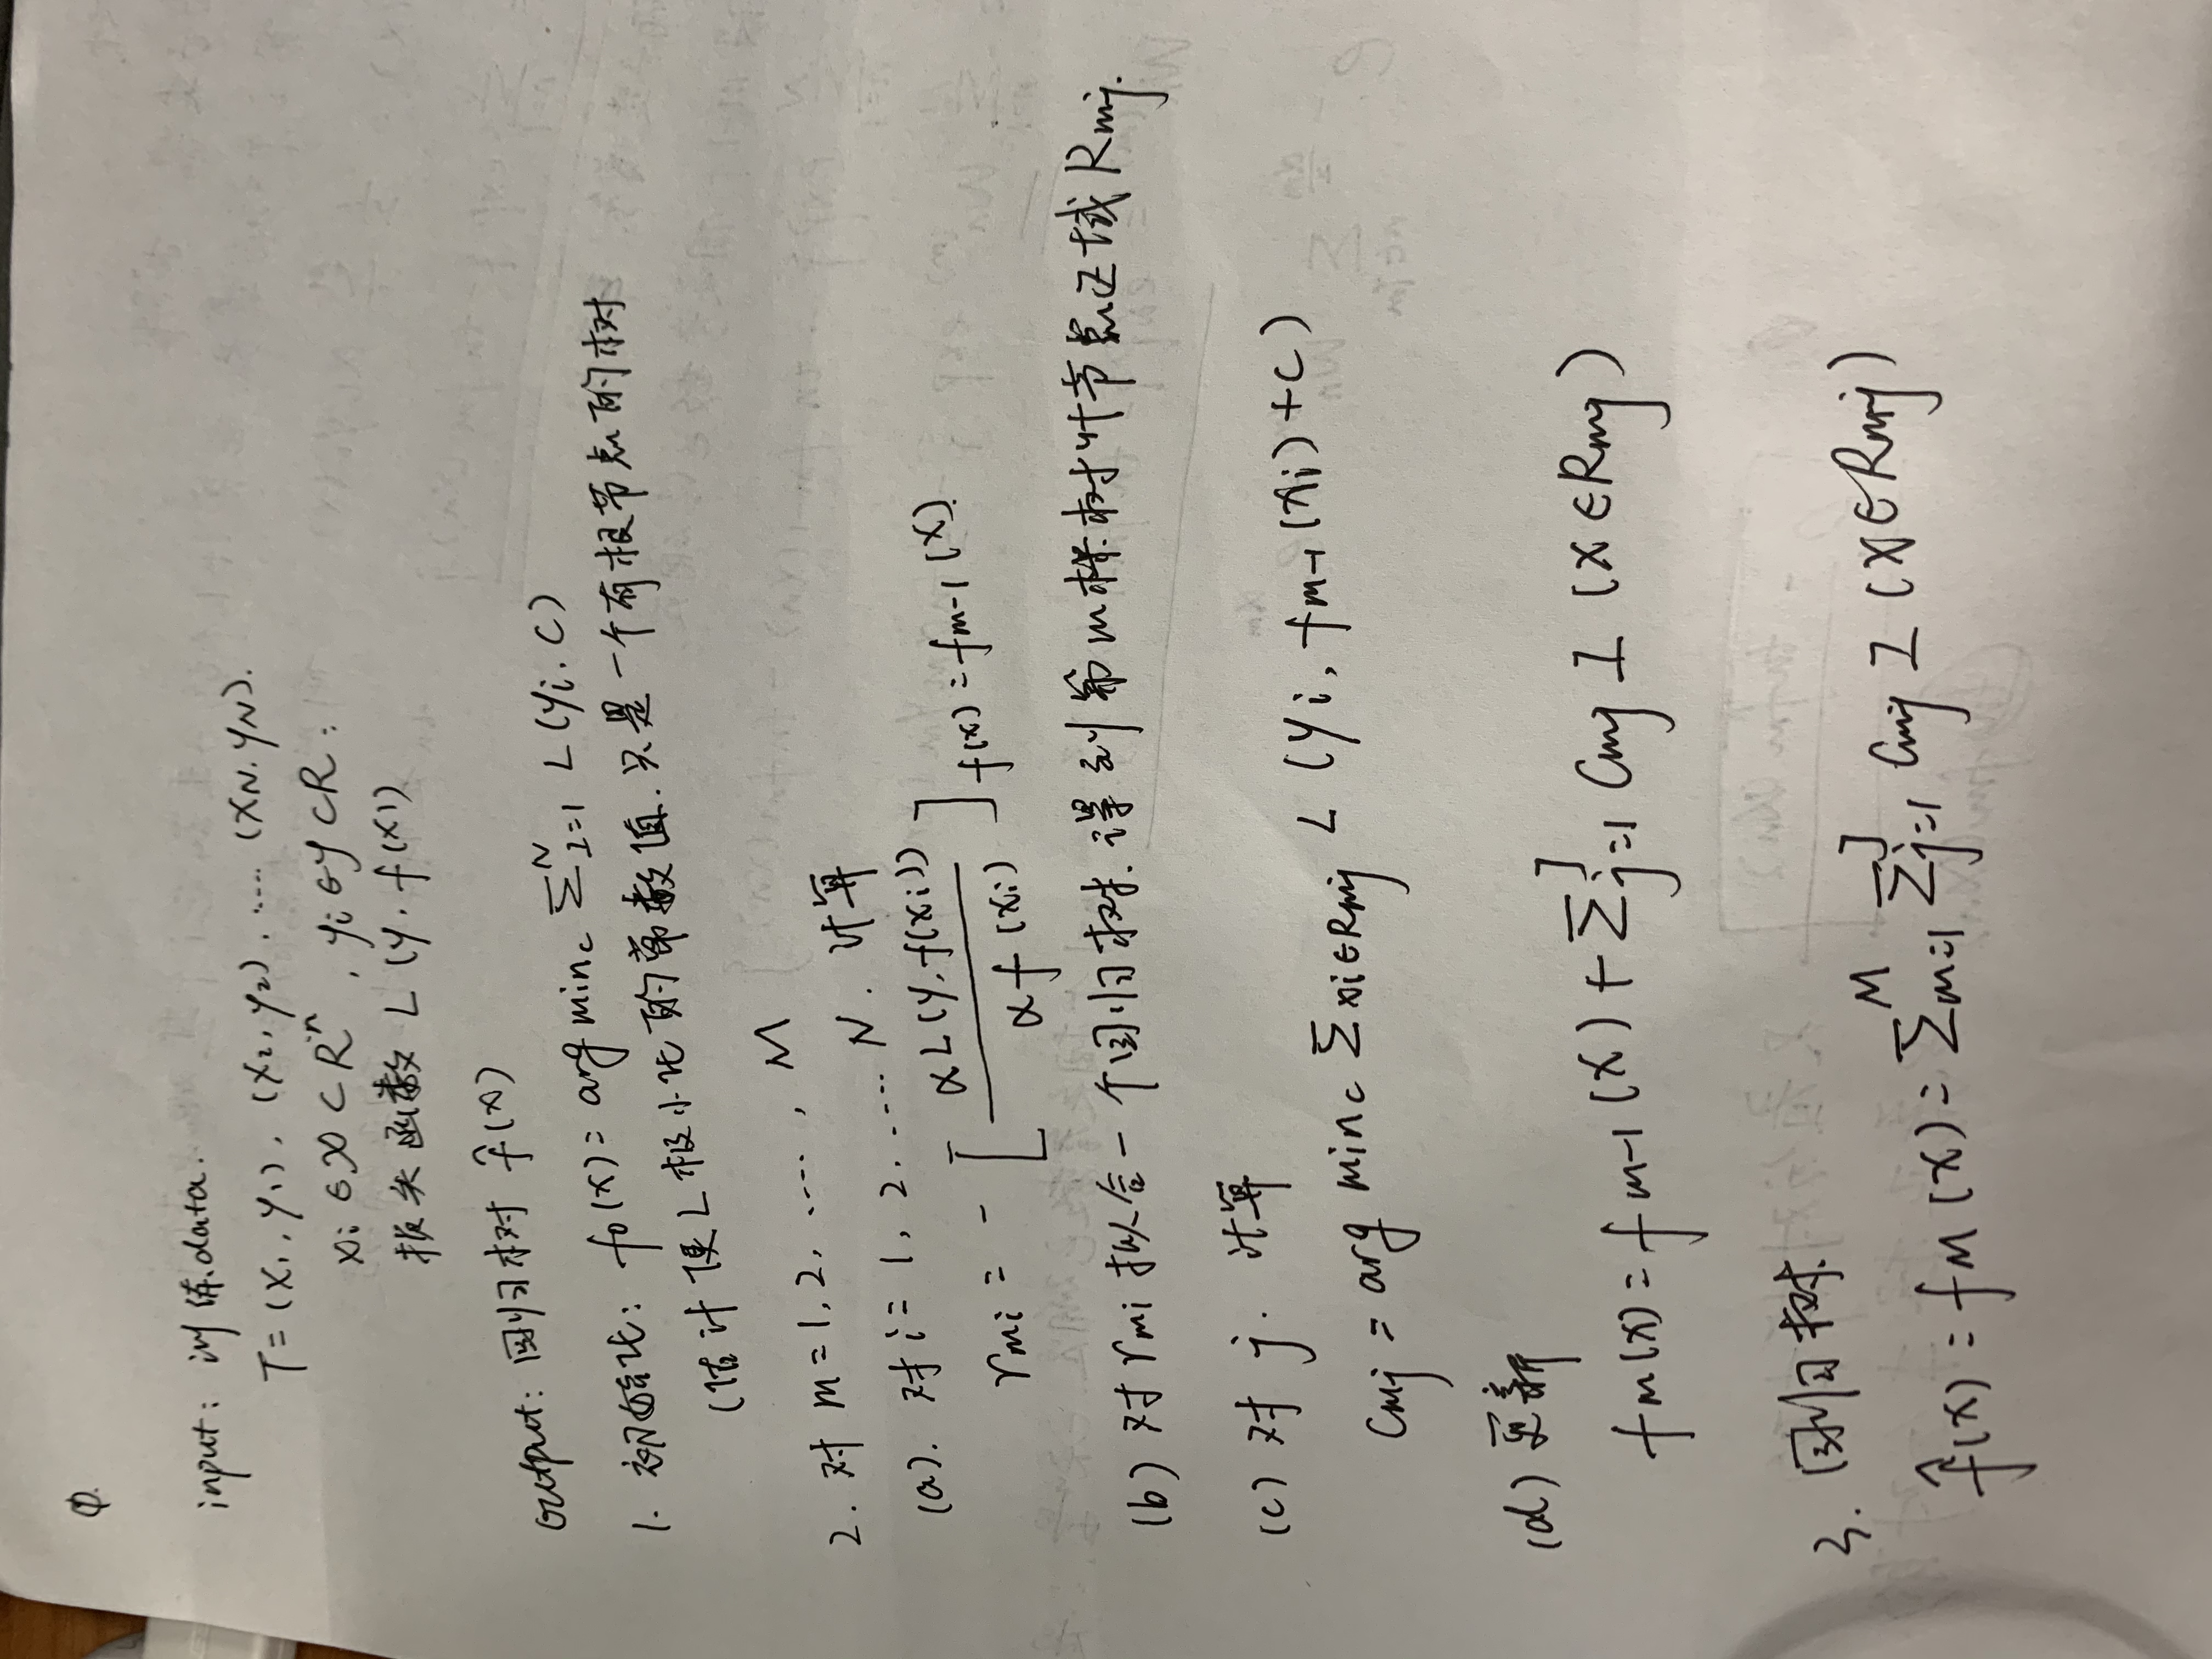 ①.
input: 训练.data.
T = (x₁, y₁), (x₂, y₂), ..... (xN, yN).
xi ∈ X ⊂ Rⁿ, yi ∈ y ⊂ R:
损失函数 L (y, f(x))
output: 回归树 f̂(x)
1. 初始化: f₀(x) = arg min_c Σ_{i=1}^N L(yi, C)
(估计使L极小化的常数值.只是一个有根节点的树
2. 对 m = 1, 2, ....., M
(a). 对 i = 1, 2, ..... N. 计算
r_mi = - [ αL(y, f(xi)) / αf(xi) ] f(x) = f_{m-1}(x).
(b) 对 r_mi 拟合一个回归树.得到第m棵树叶节点区域 R_mj.
(c) 对 j. 计算
C_mj = arg min_c Σ_{xi∈R_mj} L (yi, f_{m-1}(xi) + C)
(d) 更新
f_m(x) = f_{m-1}(x) + Σ_{j=1}^J C_mj I (x ∈ R_mj)
3. 回归树
f̂(x) = f_M(x) = Σ_{m=1}^M Σ_{j=1}^J C_mj I (x ∈ R_mj)